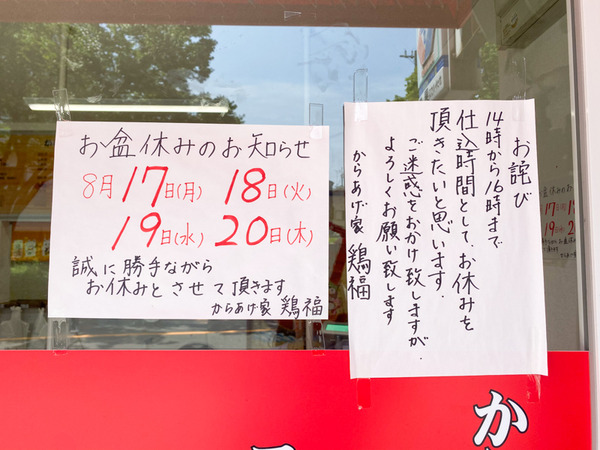 お盆休みのお知らせ
8月17日(月) 18日(火)
19日(水) 20日(木)
誠に勝手ながら
お休みとさせて頂きます
からあげ家 鶏福
お詫び
14時から16時まで
仕込時間として、お休みを
頂きたいと思います.
ご迷惑をおかけ致しますが.
よろしくお願い致します
からあげ家 鶏福
か